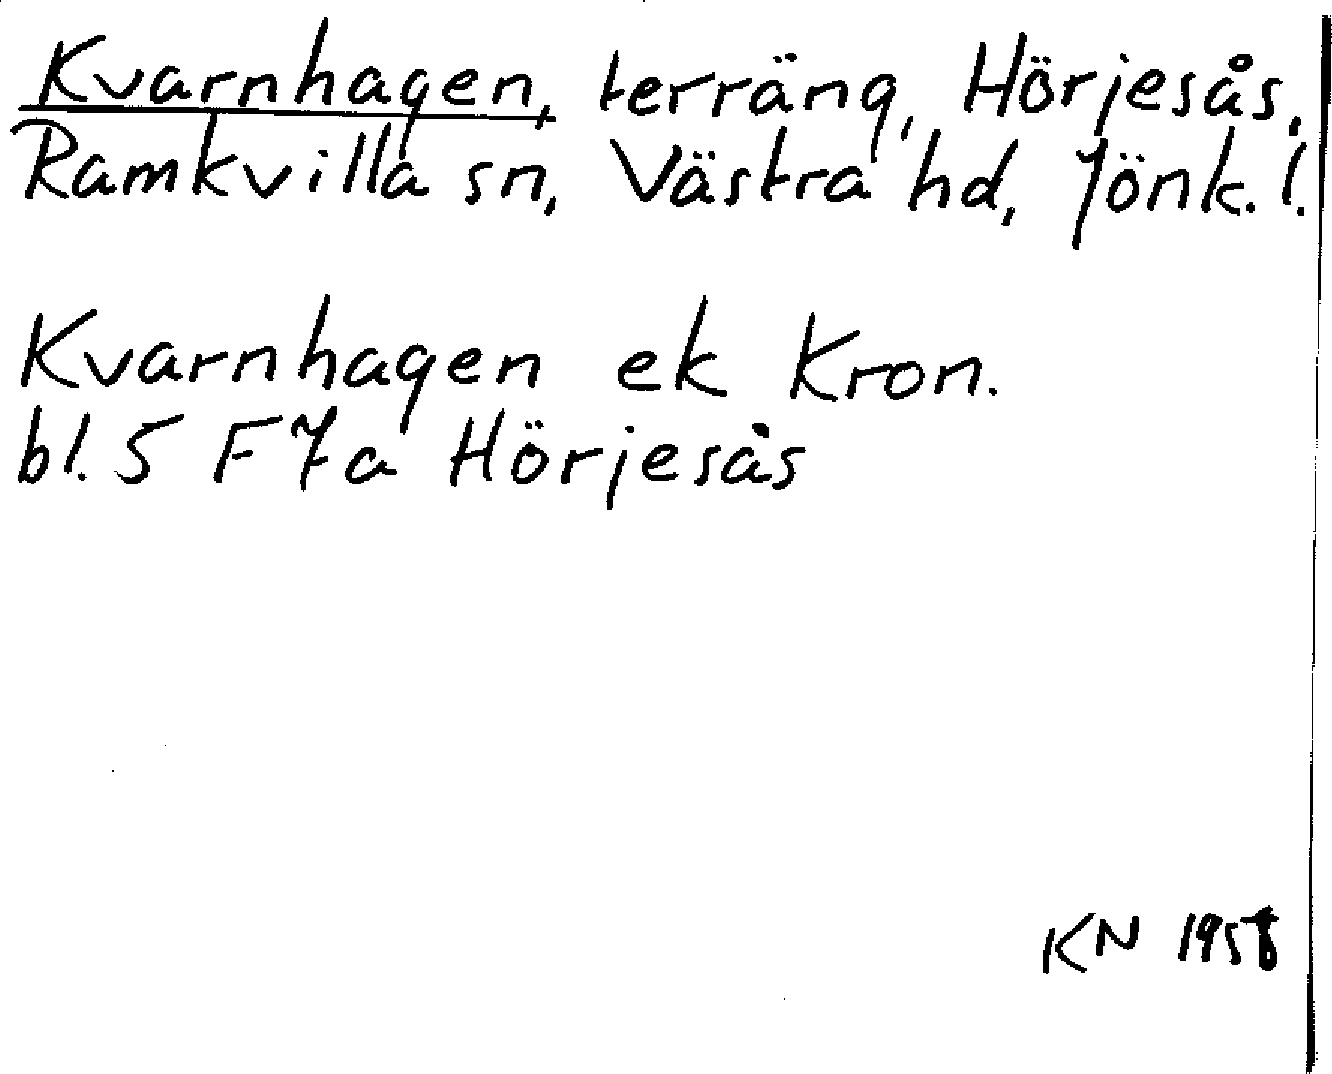 Kvarnhagen, terräng, Hörjesås,
Ramkvilla sn, Västra hd, Jönk. l.
Kvarnhagen ek Kron.
bl. 5 F 7a Hörjesås
KN 1958